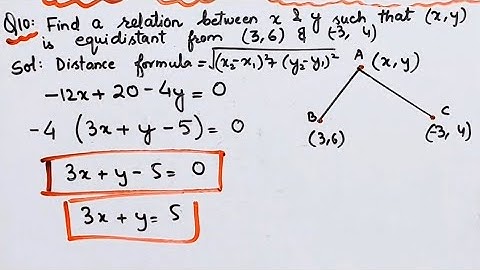 Q10: Find a relation between x & y such that (x,y)
is equidistant from (3,6) & (-3, 4)
Sol: Distance formula = √(x₂-x₁)²+(y₂-y₁)²
A (x,y)
-12x + 20 - 4y = 0
-4 (3x + y - 5) = 0
B
(3,6)
C
(-3, 4)
3x + y - 5 = 0
3x + y = 5